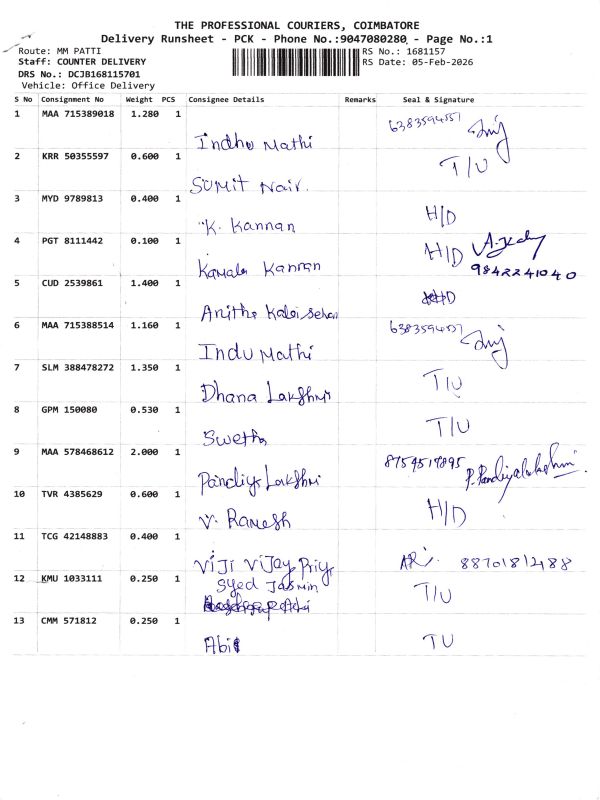 THE PROFESSIONAL COURIERS, COIMBATORE
Delivery Runsheet - PCK - Phone No.:9047080280 - Page No.:1
Route: MM PATTI RS No.: 1681157
Staff: COUNTER DELIVERY RS Date: 05-Feb-2026
DRS No.: DCJB168115701
Vehicle: Office Delivery
S No Consignment No Weight PCS Consignee Details Remarks Seal & Signature
1 MAA 715389018 1.280 1 6383594557
Indhu Mathi
2 KRR 50355597 0.600 1 T/U
Sumit Nair.
3 MYD 9789813 0.400 1 H/D
K. Kannan
4 PGT 8111442 0.100 1 H/D
Kamala Kannan 9842241040
5 CUD 2539861 1.400 1 H/D
Anitha Kalai Selvan
6 MAA 715388514 1.160 1 6383594557
Indu Mathi
7 SLM 388478272 1.350 1 T/U
Dhana Lakshmi
8 GPM 150080 0.530 1 T/U
Swetha
9 MAA 578468612 2.000 1 8754517895 P. Pandiyalakshmi
Pandiya Lakshmi
10 TVR 4385629 0.600 1 H/D
V. Ramesh
11 TCG 42148883 0.400 1 8870181288
Viji Vijay Priya
12 KMU 1033111 0.250 1 T/U
Syed Jasmin
13 CMM 571812 0.250 1 TU